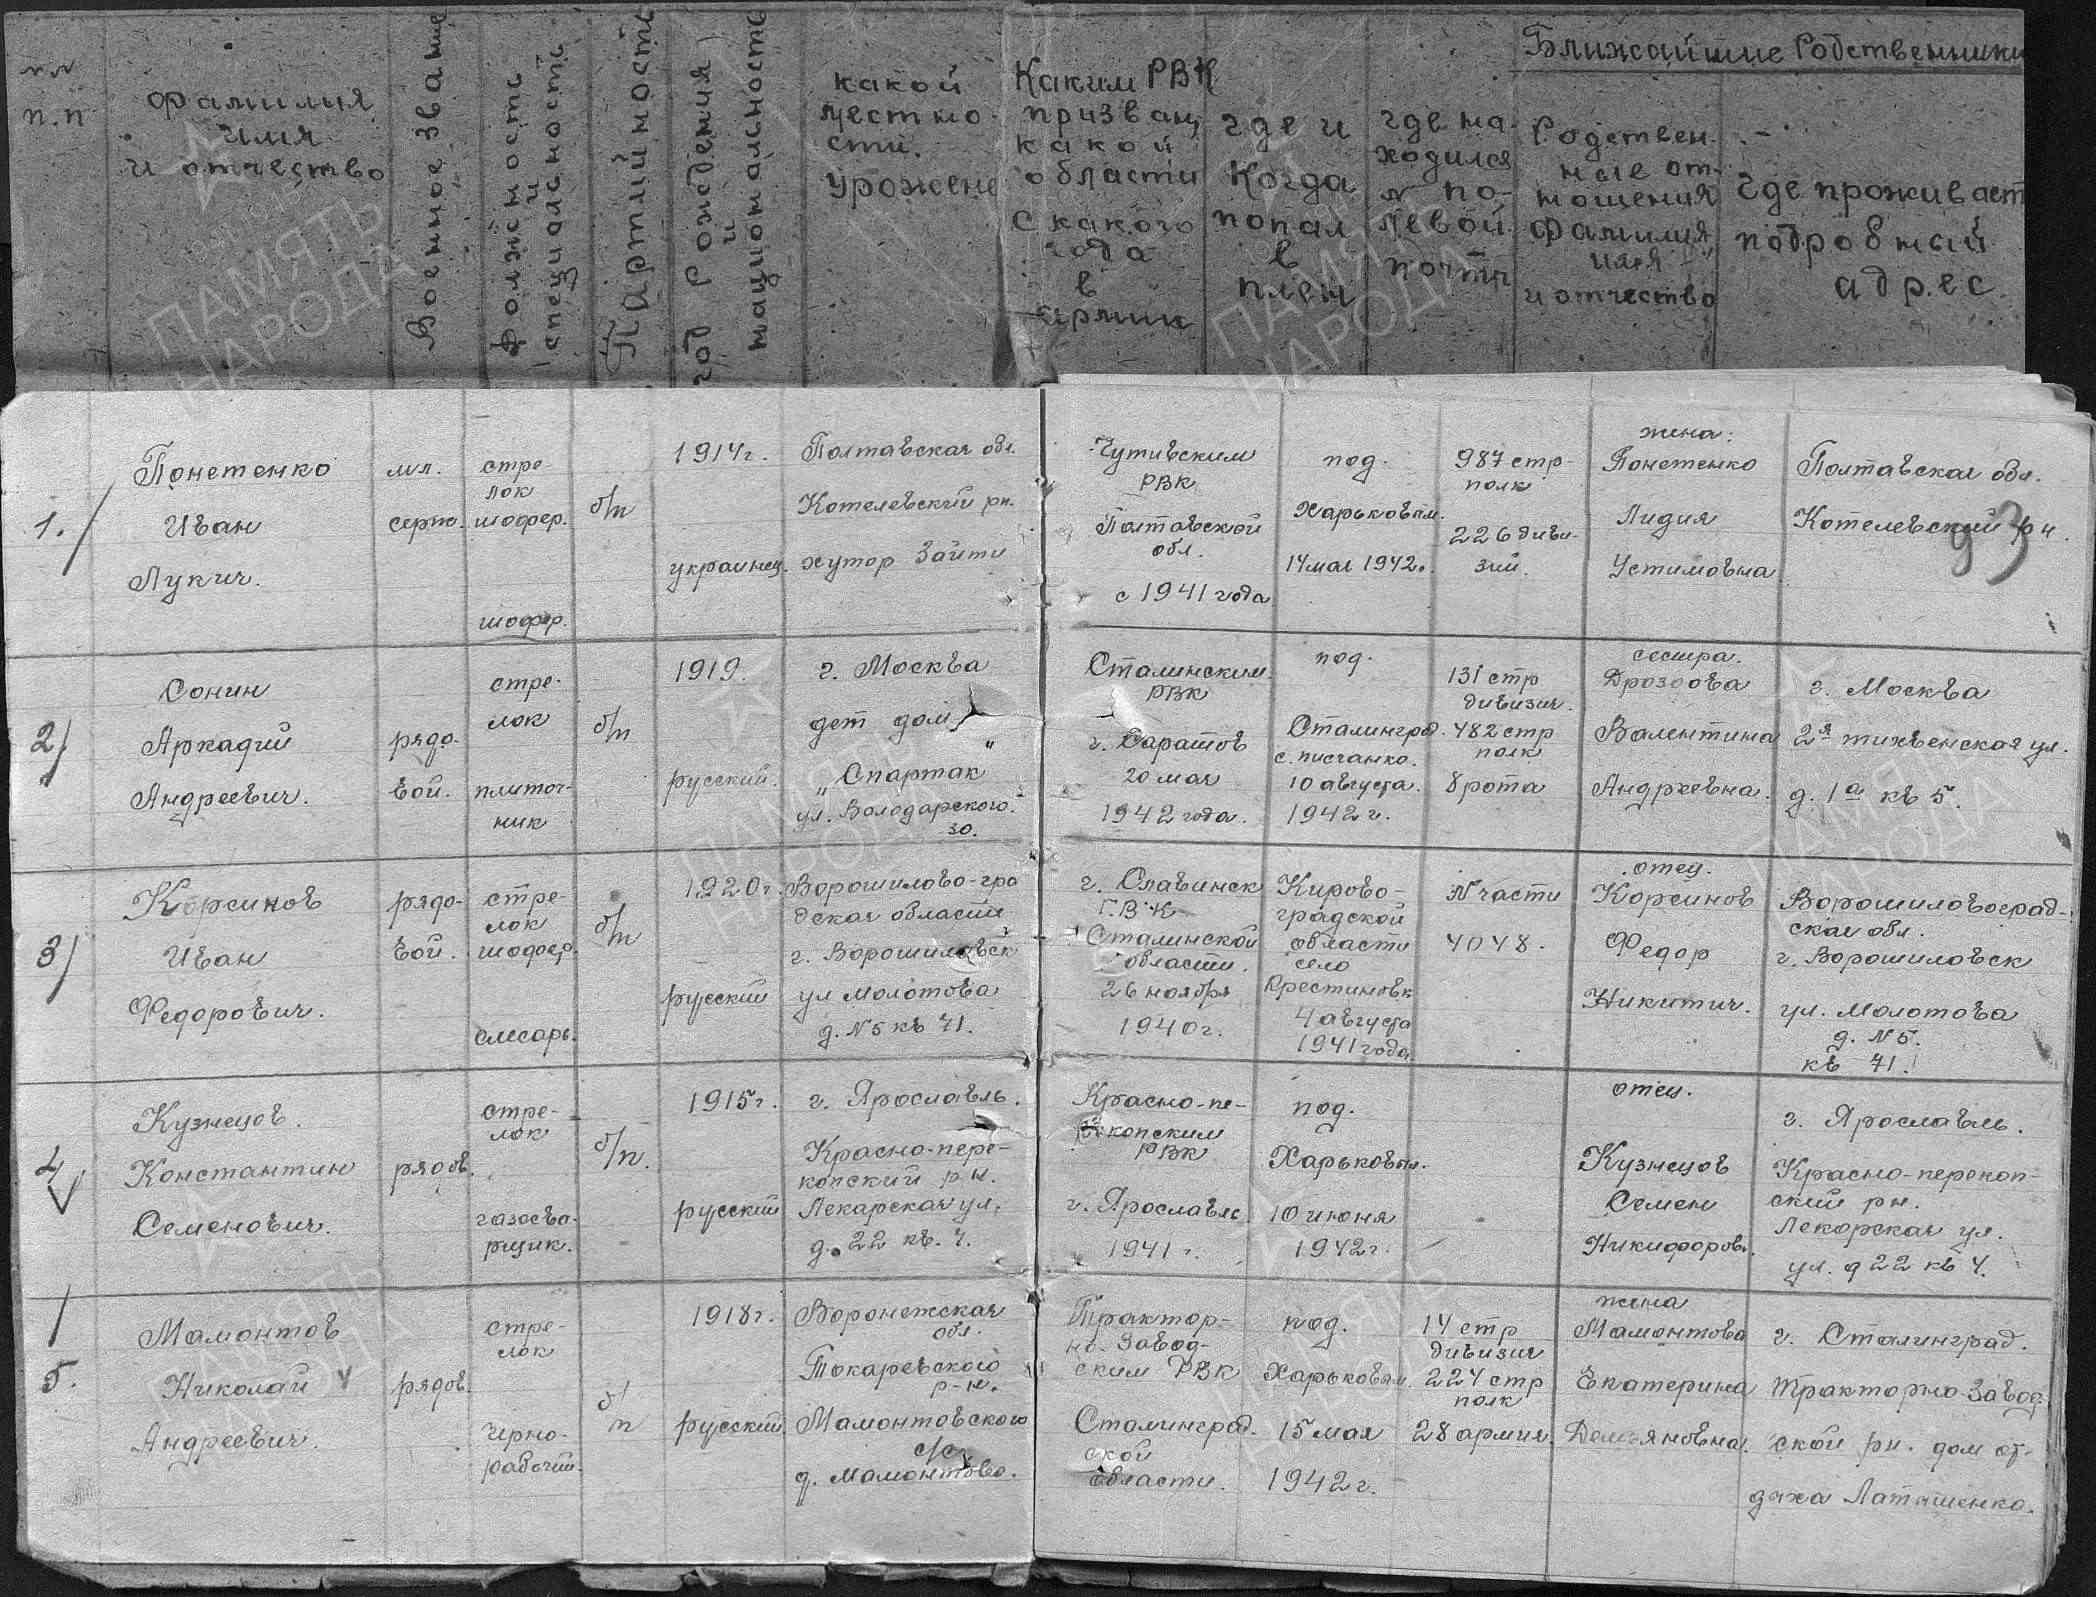 №№
п.п
Фамилия
имя
и отчество
Военное звание
Должность
и
специальность
Партийность
год рождения
и
национальность
какой
местно-
сти.
урожене
Каким РВК
призван,
какой
области
с какого
года
в
армии
где и
когда
попал
в
плен
где на-
ходился
№ по-
левой
почты
Ближайшие родственники
Родствен-
ные от-
ношения
Фамилия,
имя
и отчество
где проживает
подробный
адрес
1.
Понетенко
Иван
Лукич.
мл.
серж.
стре-
лок
шофер.
шофер.
б/п
1914г.
украинец.
Полтавская обл.
Котелевский рн.
хутор Зайти
Чутивским
РВК
Полтавской
обл.
с 1941 года
под.
Харьковам.
14 мая 1942г.
987 стр-
полк
226 диви-
зии.
жена:
Понетенко
Лидия
Устимовна
Полтавская обл.
Котелевский рн.
93
2)
Сонин
Аркадий
Андреевич.
рядо-
вой.
стре-
лок
плиточ-
ник
б/п
1919.
русский.
г. Москва
дет дом
„Спартак"
ул. Володарского.
30.
Сталинским
РВК
г. Саратов
20 мая
1942 года.
под.
Сталинград.
с. писчанко.
10 августа.
1942 г.
131 стр
дивизия.
482 стр
полк
8 рота
сестра.
Дроздова
Валентина
Андреевна.
г. Москва
2я тихвенская ул.
д. 1а кв 5.
3)
Корсинов
Иван
Федорович.
рядо-
вой.
стре-
лок
шофер.
слесарь.
б/п
1920г.
русский
Ворошилово-гра
дская области
г. Ворошиловск
ул Молотова
д. №5 кв 71.
г. Славинск
Г.В.К
Сталинской
области.
26 ноября
1940г.
Кирово-
градской
области
село
Крестиновк
4 августа
1941 года.
№ части
4048.
отец.
Корсинов
Федор
Никитич.
Ворошиловоград-
ская обл.
г. Ворошиловск
ул. Молотова
д. №5.
кв 71.
4
Кузнецов.
Константин
Семенович.
рядов.
стре-
лок
газосва-
рщик.
б/п.
1915г.
русский
г. Ярославль.
Красно-пере-
копский рн.
Лекарская ул,
д. 22 кв. 4.
Красно-пе-
рекопским
РВК
г. Ярославл
1941 г.
под.
Харьковым.
10 июня
1942г.
отец.
Кузнецов
Семен
Никифоров.
г. Ярославль.
Красно-перекоп-
ский рн.
Лекорская ул.
ул. д 22 кв 4.
5.
Мамонтов
Николай
Андреевич.
рядов.
стре-
лок
черно-
рабочий.
б/п
1918г.
русский
Воронежская
обл.
Токаревского
р-н.
Мамонтовского
с/с,
д. Мамонтово.
Трактор-
но-Завод-
ским РВК
Сталинград.
ской
области.
под.
Харьковам.
15 мая
1942г.
14 стр
дивизия
224 стр
полк
28 армия.
жена
Мамонтова
Екатерина
Демьяновна.
г. Сталинград.
Тракторно-Завод.
ской рн. дом от-
даха Латашенка.
ПАМЯТЬ
НАРОДА